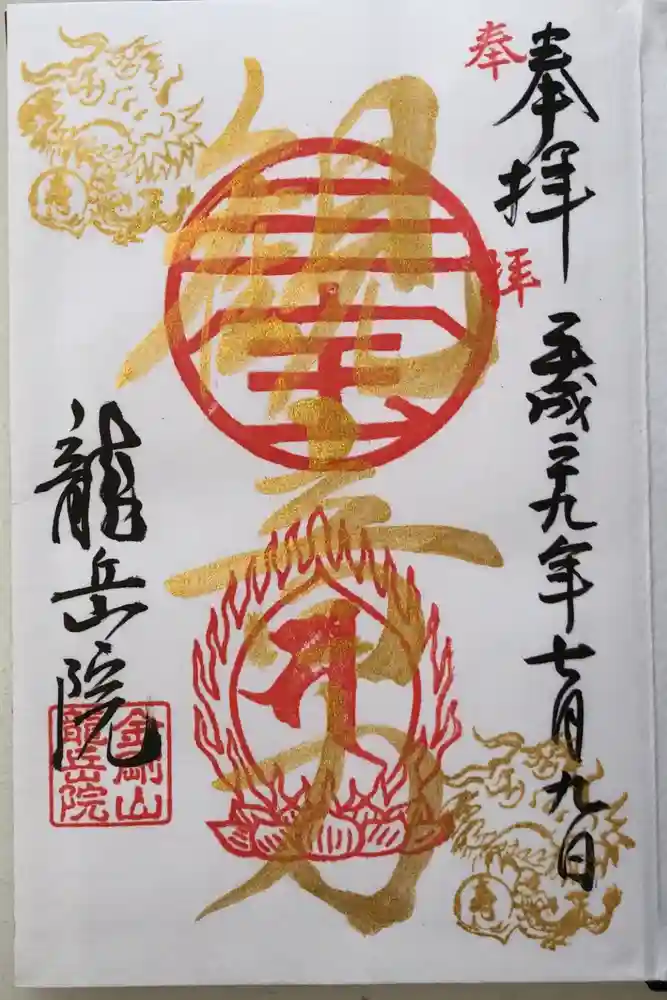 奉拝
奉拝
平成二十九年七月九日
観音力
龍岳院
金剛山
龍岳院